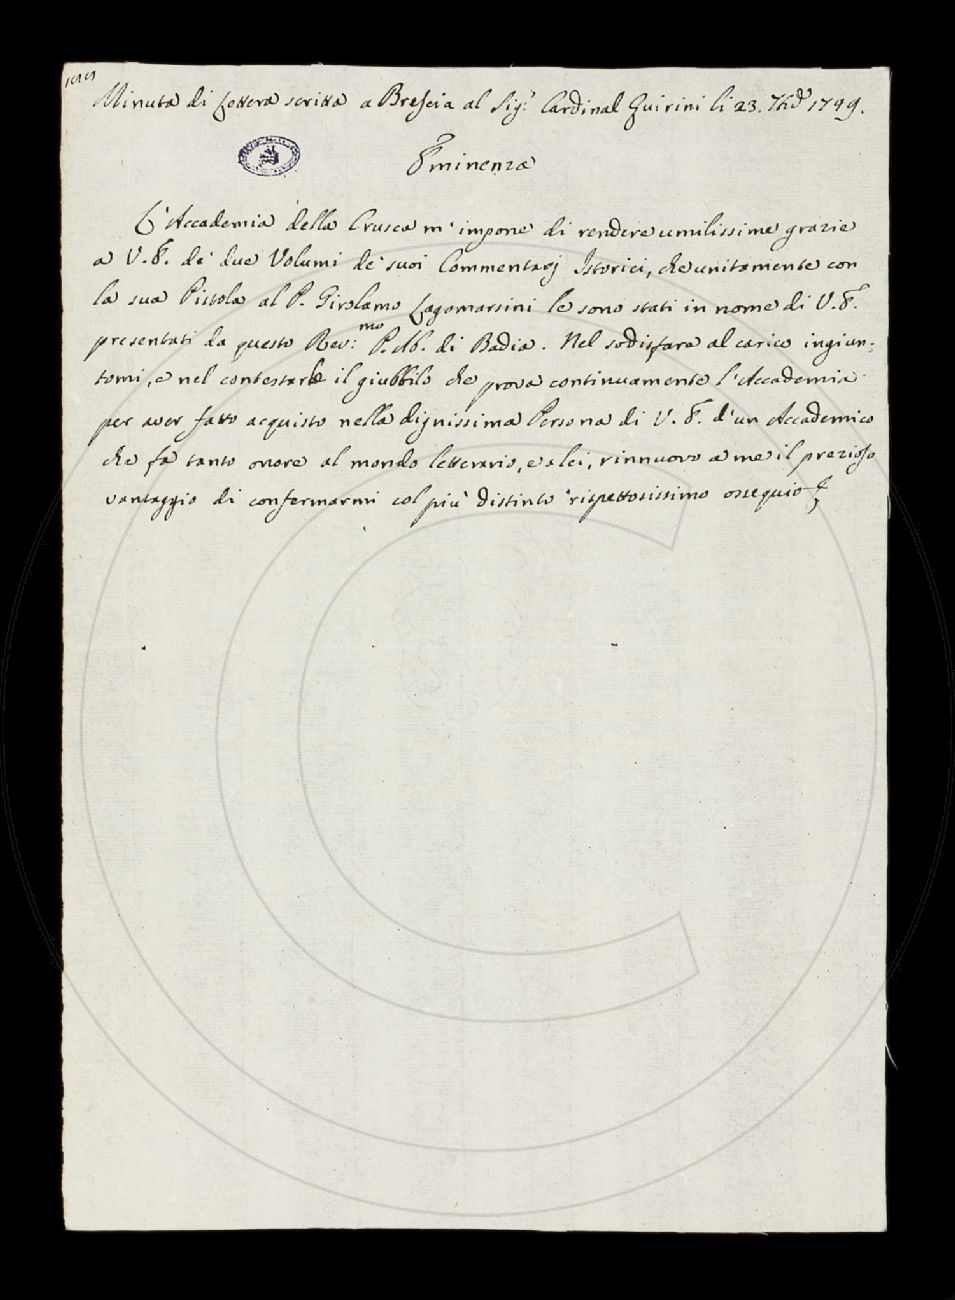 Minuta di Lettera scritta a Brescia al Sig.r Cardinal Quirini li 23. 1749.
Eminenza
L'Accademia della Crusca m'impone di rendere umilissime grazie
a V. E. de' due Volumi de' suoi Commentarj Istorici, che unitamente con
la sua Pistola al P. Girolamo Lagomarsini le sono stati in nome di V. E.
presentati da questo Rev:mo P. Ab. di Badia. Nel sodisfare al carico ingiun-
tomi, e nel contestarle il giubbilo che prova continuamente l'Accademia
per aver fatto acquisto nella dignissima Persona di V. E. d'un Accademico
che fa tanto onore al mondo letterario, e a lei, rinnuovo a me il prezioso
vantaggio di confermarmi col più distinto rispettosissimo ossequio